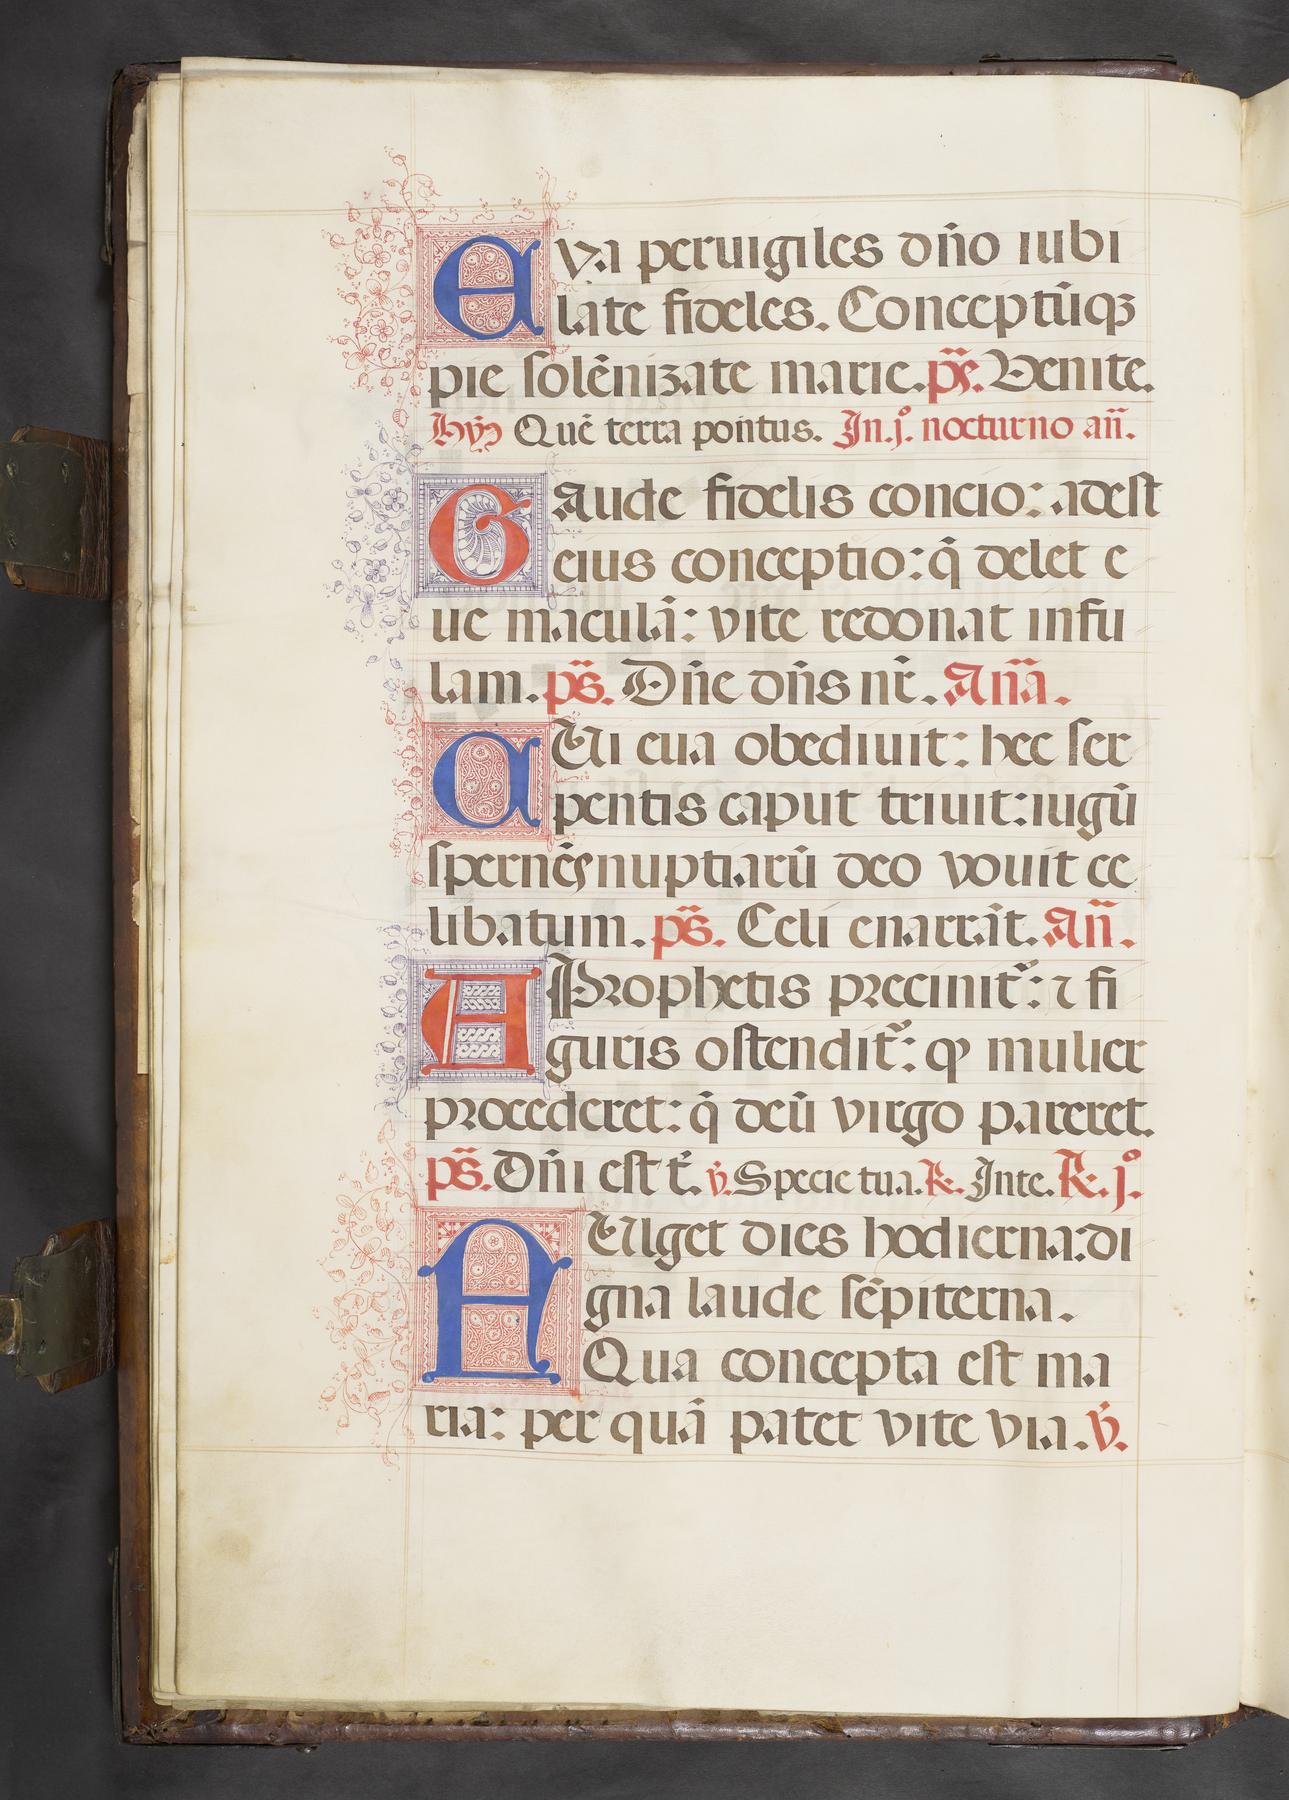 Eva peruigiles dño iubi
late fideles. Conceptũqꝫ
pie solēnizate marie. pẽ. Venite.
hỹ Quē terra pontus. In .j.º nocturno añ.
Gaude fidelis concio: adest
eius conceptio: q̄ delet e
ue maculā: vite redonat infu
lam. ps̃. Dñe dñs nr̄. Añã.
QUi eua obediuit: hec ser
pentis caput triuit: iugũ
spernēs nuptiarũ deo vouit ce
libatum. ps̃. Celi enarrāt. Añ.
A Prophetis precinit̃: ⁊ fi
guris ostendit̃: ꝙ mulier
procederet: q̄ deũ virgo pareret.
ps̃. Dñi est t̃. ṽ. Specie tua. ℟. Inte. ℟. j.º
FUlget dies hodierna: di
gna laude sēpiterna.
Qua concepta est ma
ria: per quā patet vite via. ṽ.